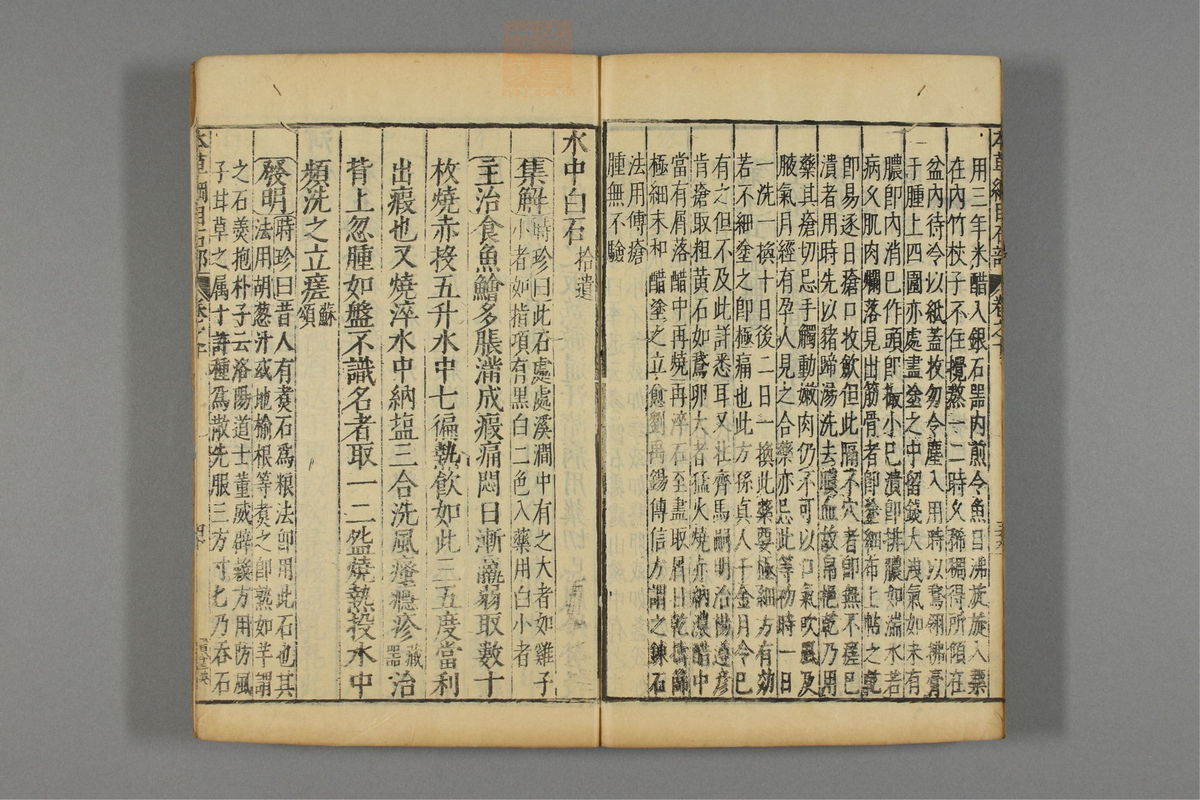 用三年米醋入銀石器内煎令魚目沸旋旋入藥
在内竹杖子不住攪熬一二時久稀稠得所傾在
盆内待令以紙蓋收勿令塵入用時以鵞翎拂膏
于腫上四圍亦處盡塗之中留錢大洩氣如未有
膿即内消已作頭即撮小已潰即排膿如湍水若
病久肌肉爛落見出筋骨者即塗細布上帖之乾
即易逐日瘡口收斂但此膈不穴者即無不瘥已
潰者用時先以猪蹄湯洗去膿血故帛挹乾乃用
藥其瘡切忌手觸動嫩肉仍不可以口氣吹風及
腋氣月經有孕人見之合藥亦忌此等初時一日
一洗一換十日後二日一換此藥要極細方有効
若不細塗之即極痛也此方孫真人千金月令已
有之但不及此詳悉耳又北齊馬嗣明治楊遵彦
背瘡取粗黄石如鵞卵大者猛火燒赤納濃醋中
當有屑落醋中再燒再淬石至盡取屑日乾擣篩
極細末和醋塗之立愈劉禹錫傳信方謂之鍊石
法用傅瘡
腫無不驗
水中白石拾遺
集解時珍曰此石處處溪澗中有之大者如雞子
小者如指項有黒白二色入藥用白小者
主治食魚鱠多脹滿成瘕痛悶日漸羸弱取數十
枚燒赤投五升水中七徧熱飲如此三五度當利
出瘕也又燒淬水中納塩三合洗風瘙癮疹藏器治
背上忽腫如盤不識名者取一二盌燒熱投水中
頻洗之立瘥蘇頌
發明時珍曰昔人有煑石爲粮法即用此石也其
法用胡葱汁或地榆根等煑之即熟如芋謂
之石羹抱朴子云洛陽道士董威辟榖方用防風
子甘草之属十許種爲散先服三方寸匕乃吞石
本草綱目石部 卷之十